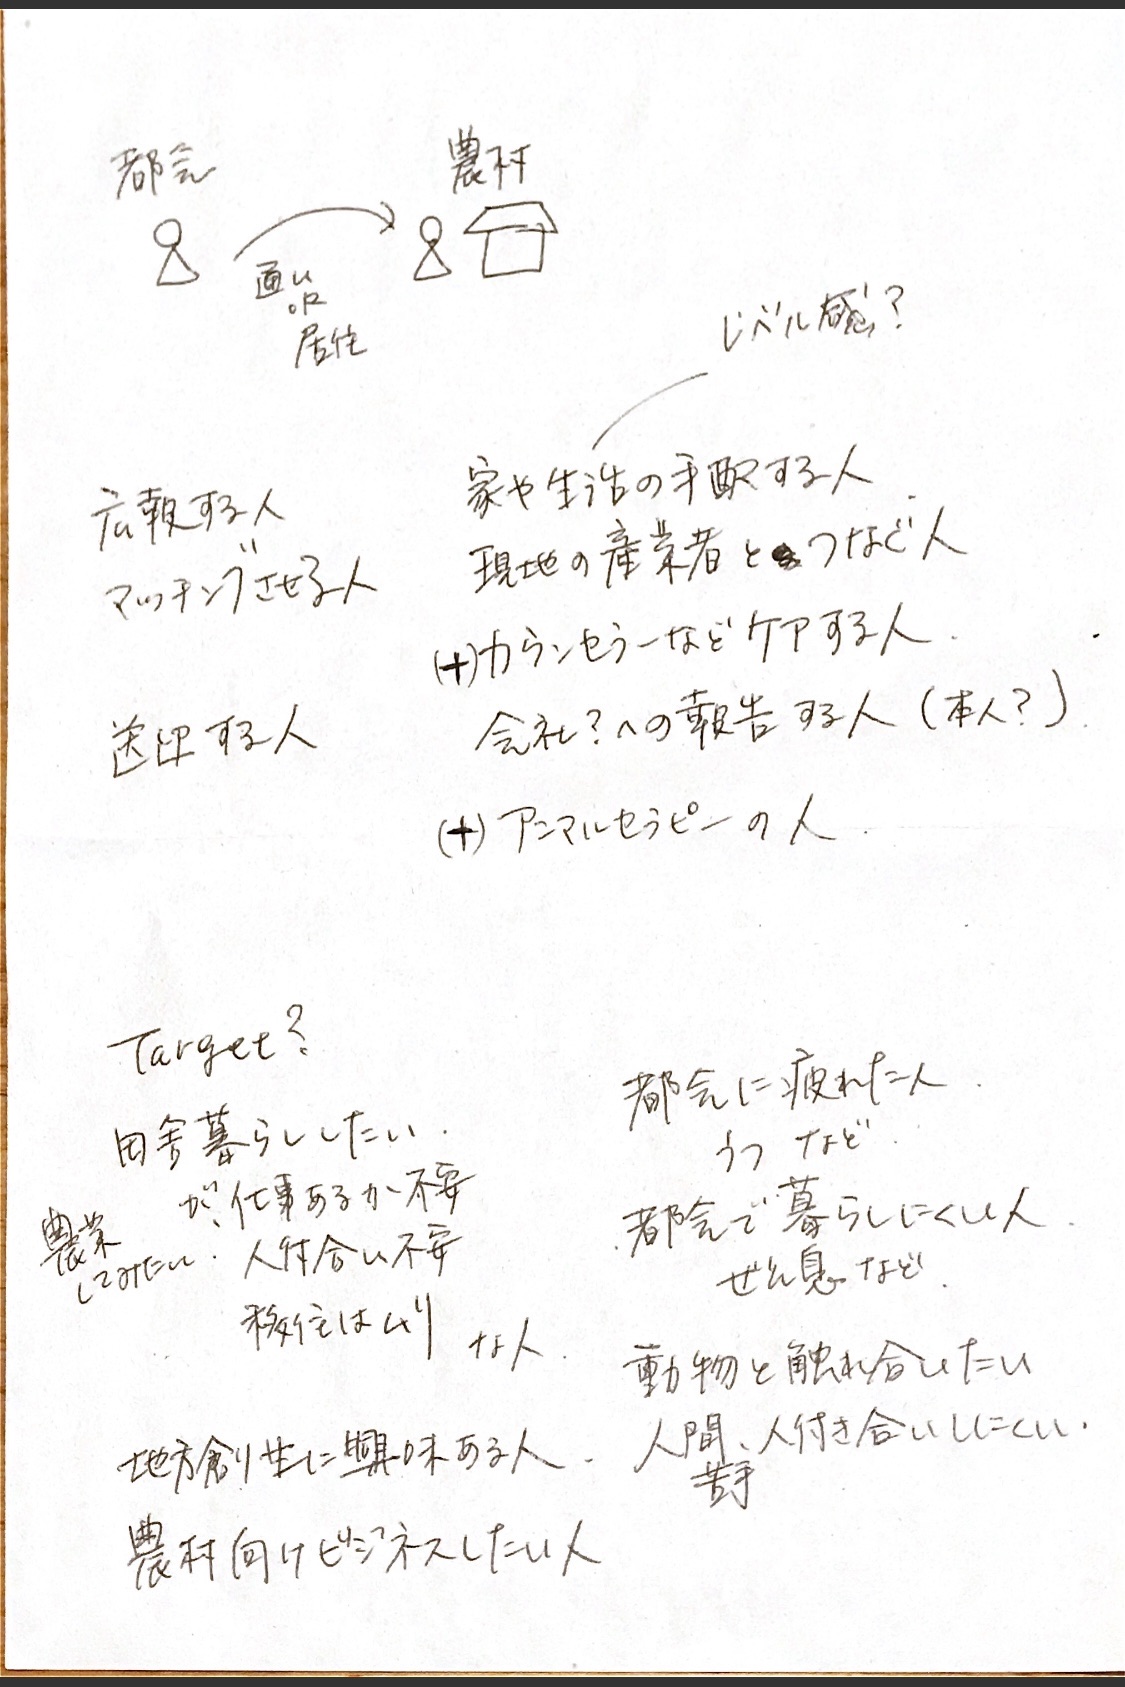 都会
農村
通い
or
居住
レベル感?
広報する人
マッチングさせる人
送迎する人
家や生活の手配する人
現地の産業者とつなぐ人
(+)カウンセラーなどケアする人
会社?への報告する人(本人?)
(+)アニマルセラピーの人
Target?
田舎暮らししたい
が、仕事あるか不安
人付合い不安
移住はムリ な人
農業
してみたい
地方創生に興味ある人
農村向けビジネスしたい人
都会に疲れた人
うつ など
都会で暮らしにくい人
ぜん息など
動物と触れ合いたい
人間、人付き合いしにくい
苦手